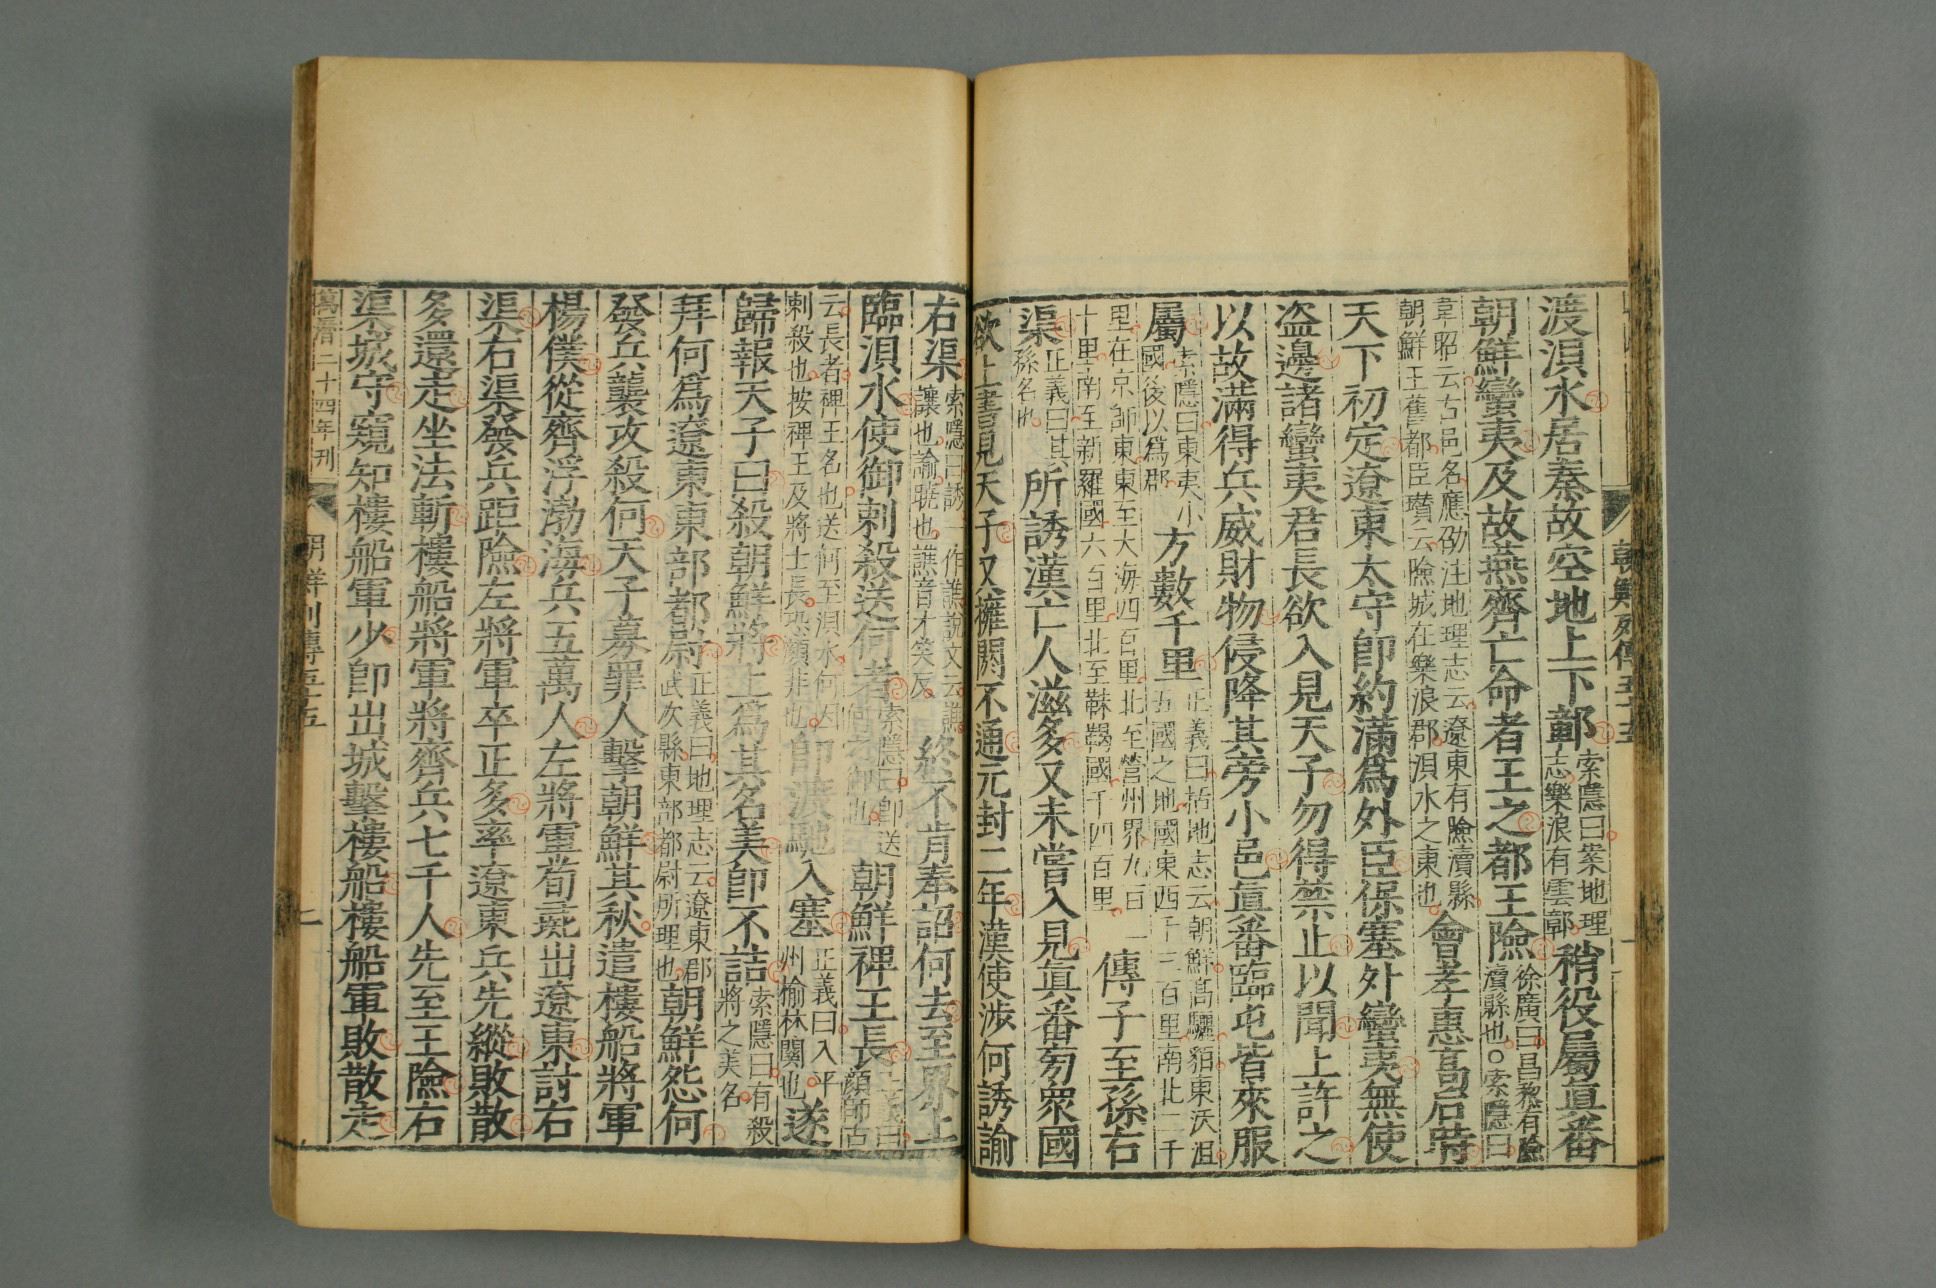 朝鮮列傳五十五
渡浿水居秦故空地上下鄣索隱曰案地理志樂浪有雲鄣稍役屬眞番
朝鮮蠻夷及故燕齊亡命者王之都王險徐廣曰昌黎有險瀆縣也○索隱曰
韋昭云古邑名應劭注地理志云遼東有險瀆縣朝鮮王舊都臣瓚云險城在樂浪郡浿水之東也會孝惠高后時
天下初定遼東太守卽約滿爲外臣保塞外蠻夷無使
盜邊諸蠻夷君長欲入見天子勿得禁止以聞上許之
以故滿得兵威財物侵降其旁小邑眞番臨屯皆來服
屬索隱曰東夷小國後以爲郡方數千里正義曰括地志云朝鮮高驪貊東沃沮五國之地國東西千三百里南北二千
里在京師東東至大海四百里北至營州界九百二十里南至新羅國六百里北至靺鞨國千四百里傳子至孫右
渠正義曰其孫名也所誘漢亡人滋多又未嘗入見眞番旁衆國
欲上書見天子又擁閼不通元封二年漢使涉何誘諭
右渠索隱曰誘一作譙說文云譙讓也諭曉也譙音才笑反終不肯奉詔何去至界上
臨浿水使御刺殺送何者索隱曰卽送何之御也朝鮮裨王長正義曰顏師古
云長者裨王名也送何至浿水何因刺殺也按裨王及將士長恐顏非也卽渡馳入塞正義曰入平州榆林關也遂
歸報天子曰殺朝鮮將上爲其名美卽不詰索隱曰有殺將之美名
拜何爲遼東東部都尉正義曰地理志云遼東郡武次縣東部都尉所理也朝鮮怨何
發兵襲攻殺何天子募罪人擊朝鮮其秋遣樓船將軍
楊僕從齊浮渤海兵五萬人左將軍荀彘出遼東討右
渠右渠發兵距險左將軍卒正多率遼東兵先縱敗散
多還走坐法斬樓船將軍將齊兵七千人先至王險右
渠城守窺知樓船軍少卽出城擊樓船樓船軍敗散走
萬曆二十四年刊 朝鮮列傳五十五 二